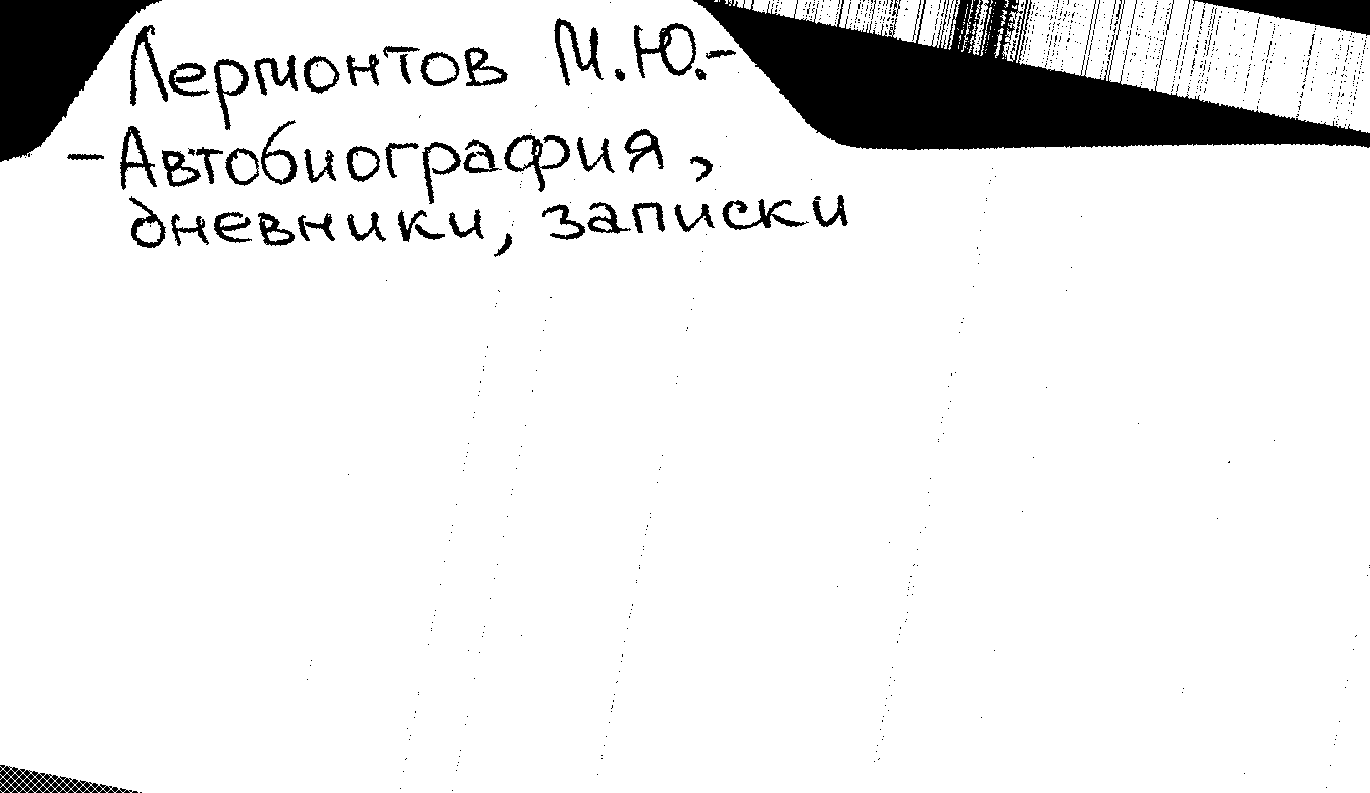 Лермонтов М.Ю.-
-Автобиография,
дневники, записки